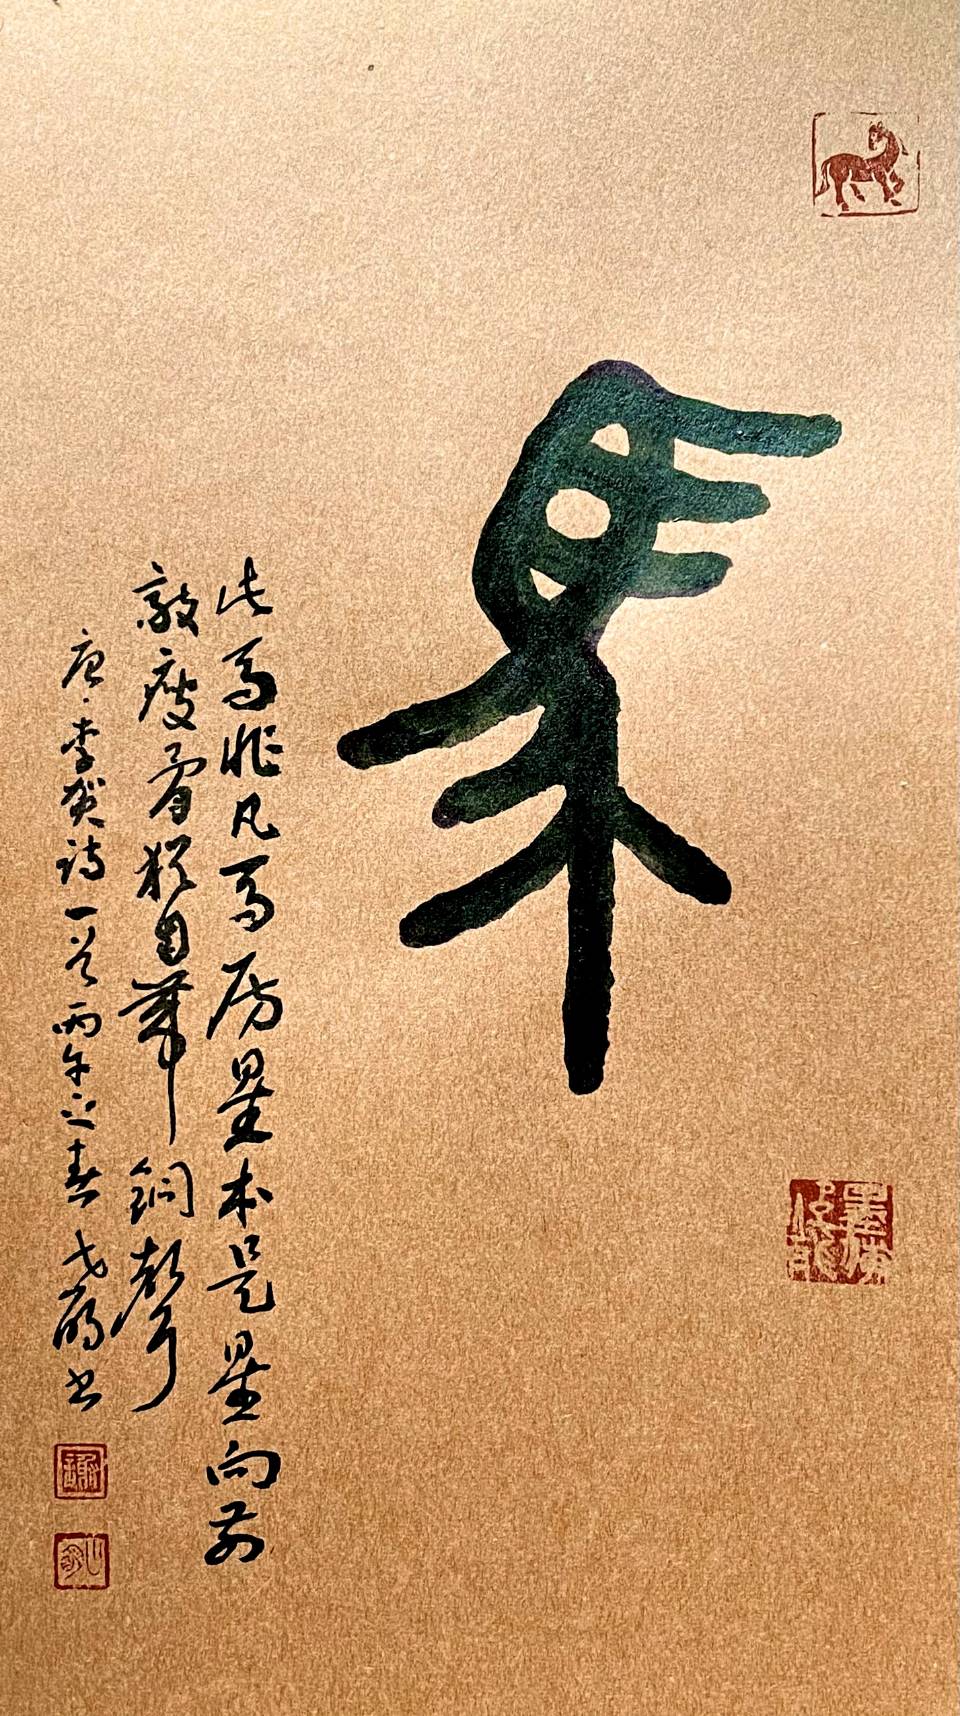 馬
此馬非凡馬房星本是星向前
敲瘦骨猶自帶銅聲
唐·李賀詩一首丙午之春書